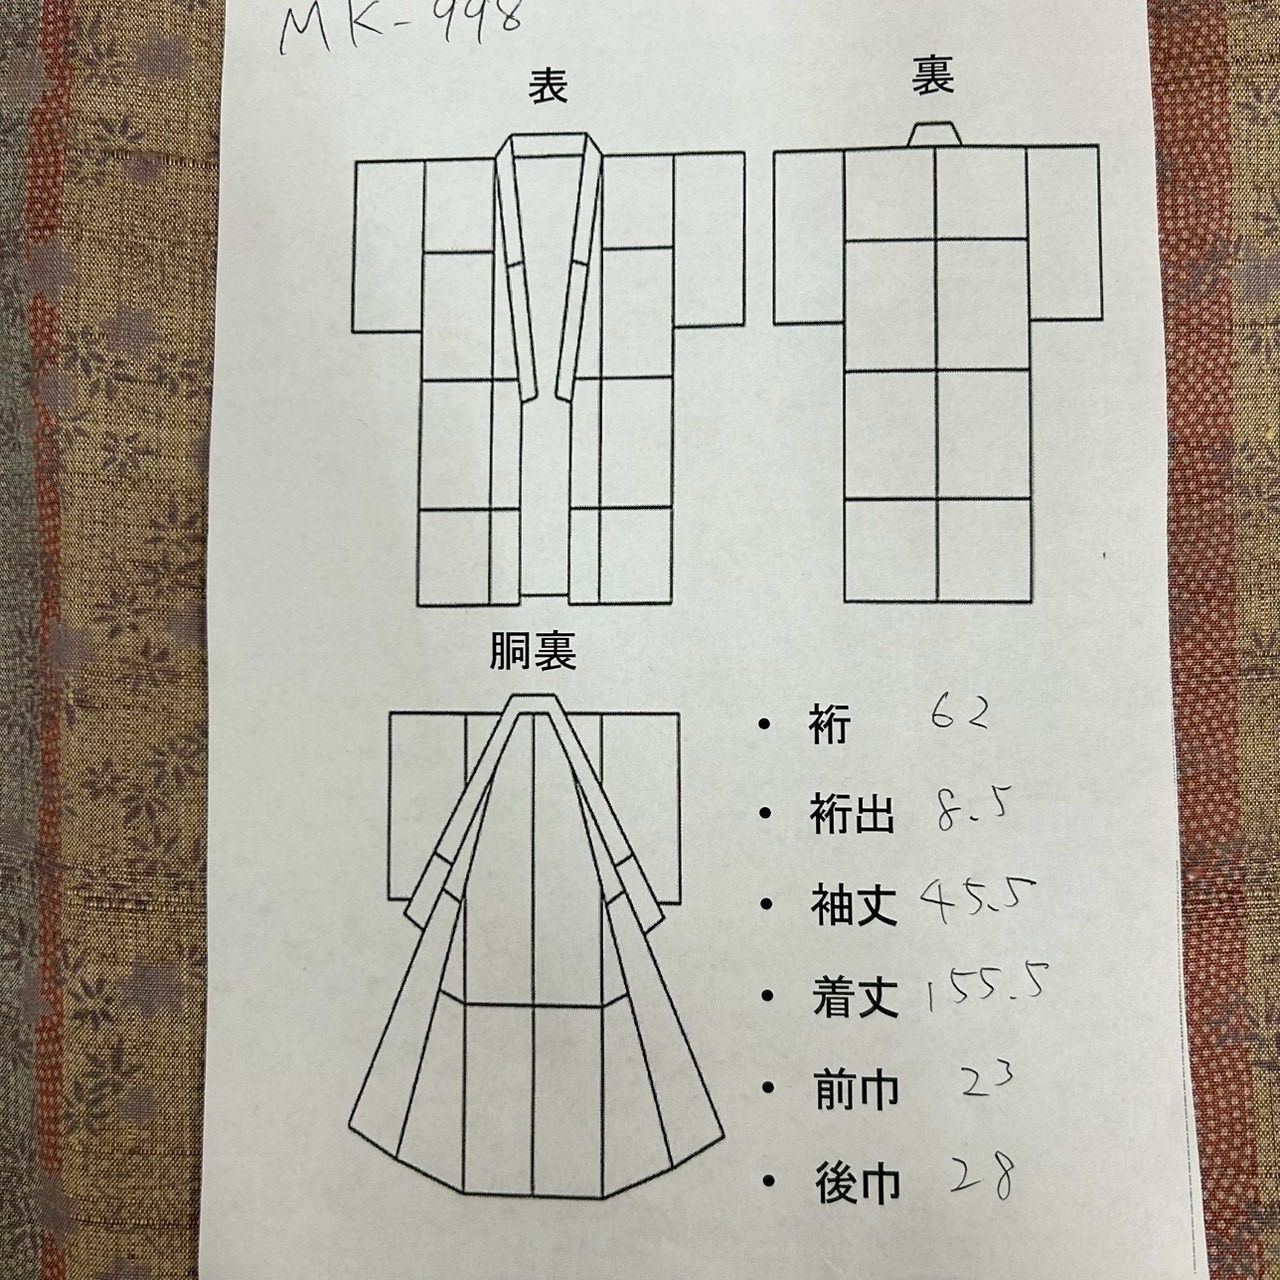 MK-998
表
裏
胴裏
・裄 62
・裄出 8.5
・袖丈 45.5
・着丈 155.5
・前巾 23
・後巾 28